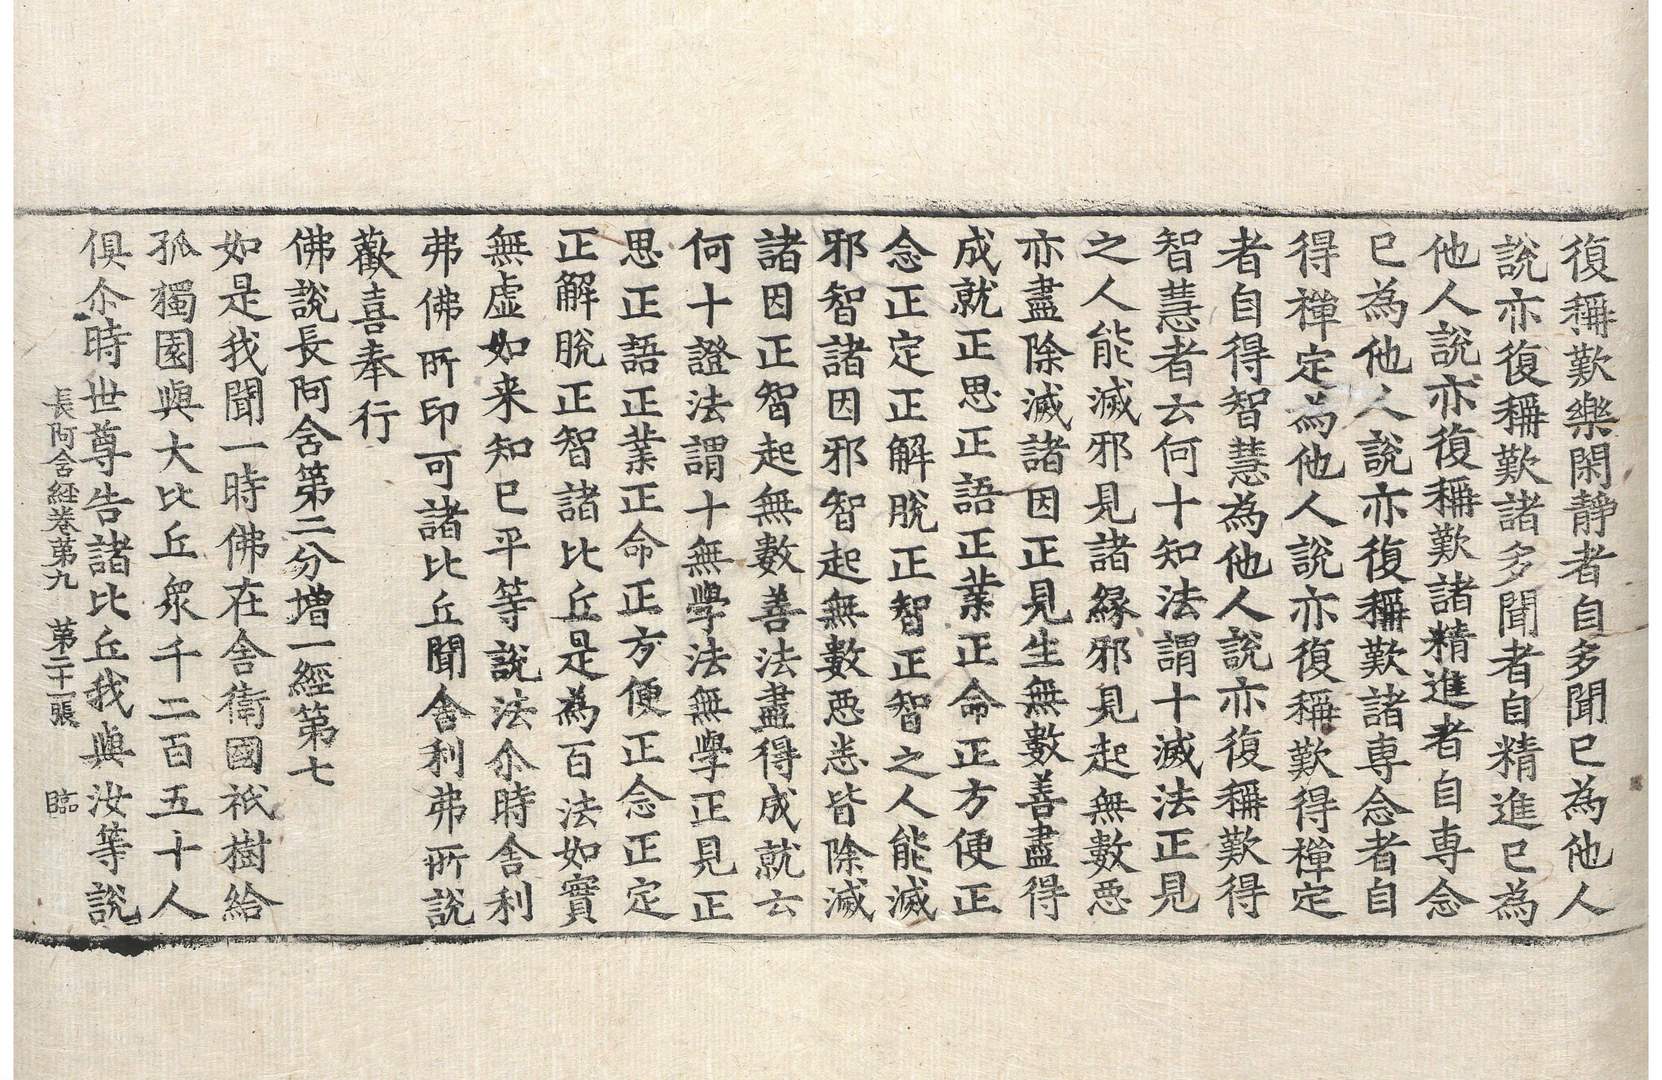 復稱歎樂閑靜者自多聞已為他人
說亦復稱歎諸多聞者自精進已為
他人說亦復稱歎諸精進者自専念
已為他人說亦復稱歎諸専念者自
得禪定為他人說亦復稱歎得禪定
者自得智慧為他人說亦復稱歎得
智慧者云何十知法謂十滅法正見
之人能滅邪見諸緣邪見起無數惡
亦盡除滅諸因正見生無數善盡得
成就正思正語正業正命正方便正
念正定正解脫正智正智之人能滅
邪智諸因邪智起無數惡悉皆除滅
諸因正智起無數善法盡得成就云
何十證法謂十無學法無學正見正
思正語正業正命正方便正念正定
正解脫正智諸比丘是為百法如實
無虛如来知已平等說法尒時舍利
弗佛所印可諸比丘聞舍利弗所說
歡喜奉行
佛說長阿含第二分增一經第七
如是我聞一時佛在舍衛國祇樹給
孤獨園與大比丘衆千二百五十人
俱尒時世尊告諸比丘我與汝等說
長阿含經卷第九　第二十一張　臨